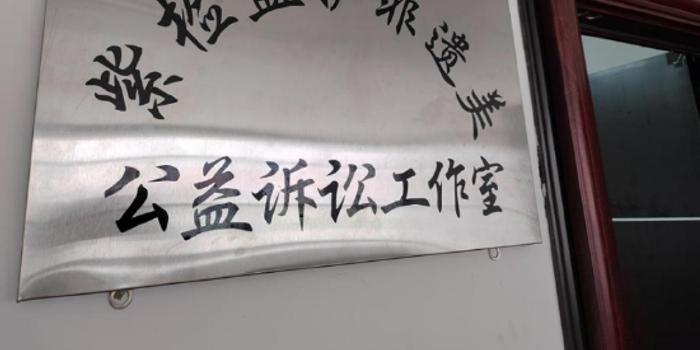 紫检益护非遗美
公益诉讼工作室